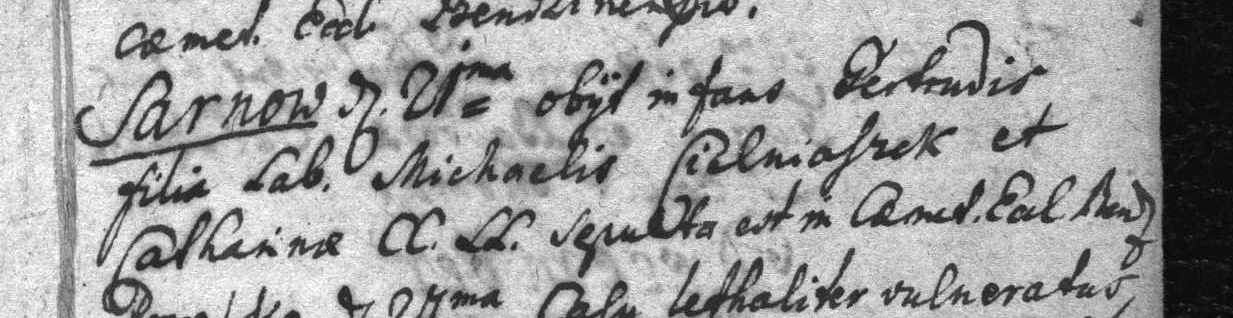 cæmet. Eccl. Bendzinensis.
Sarnow d. 21ma obijt infans Gertrudis
filia Lab. Michaelis Cielniaszek et
Catharinæ CC. LL. sepulta est in Cæmet. Eccl Bendz
d 27ma Casu lethaliter vulneratus,